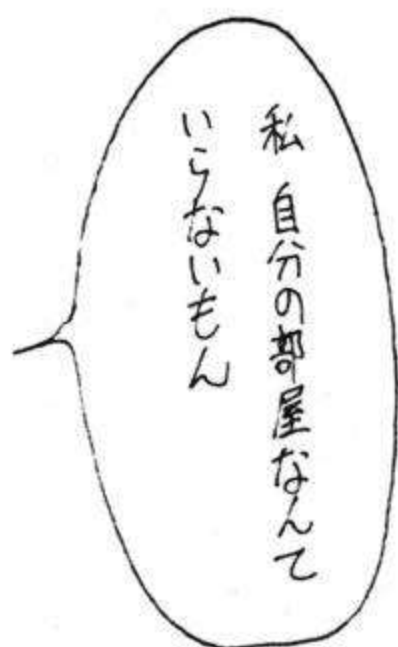 私 自分の部屋なんて
いらないもん